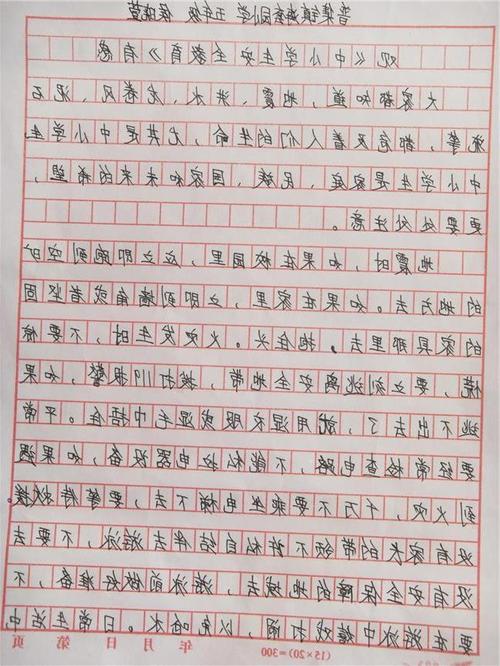 普集镇小学 五年级
观《中小学生安全教育》有感
大家都知道，地震、洪水、龙卷风、泥石
流等，都危及着人们的生命，尤其是中小学生
中小学生是家庭、民族、国家和未来的希望，
更要处处注意。
地震时，如果在校园里，应立即跑到空旷
的地方去。如果在家里，立即到墙角或者坚固
的家具那里去。抱住头。火灾发生时，不要慌
，要立刻逃离安全地带，拨打119报警，如果
逃不出去了，就用湿衣服或毛巾捂住。平常
要经常检查电路，不能私拉电器设备，如果遇
到火灾，千万不要乘坐电梯下去，要等待救援
没有家长的带领不能私自结伴去游泳，不要去
没有安全保障的地域，游泳前做好准备，不
要在游泳中嬉打闹，以免呛水。日常生活中
(15×20)=300 年 月 日 第 页